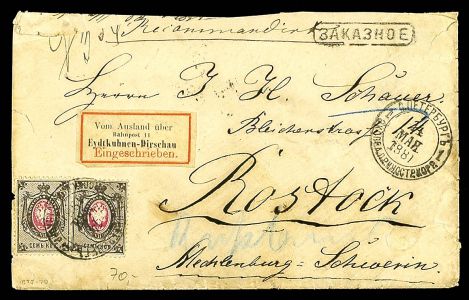 Recommandirt
ЗАКАЗНОЕ
Herrn J. H. Schauer
Vom Ausland über
Bahnpost 11
Eydtkuhnen-Dirschau
Eingeschrieben.
С.ПЕТЕРБУРГЪ
МАЯ
1881
Rostock
Mecklenburg=Schwerin.
СЕМЬ КОП.
СЕМЬ КОП.
70,-